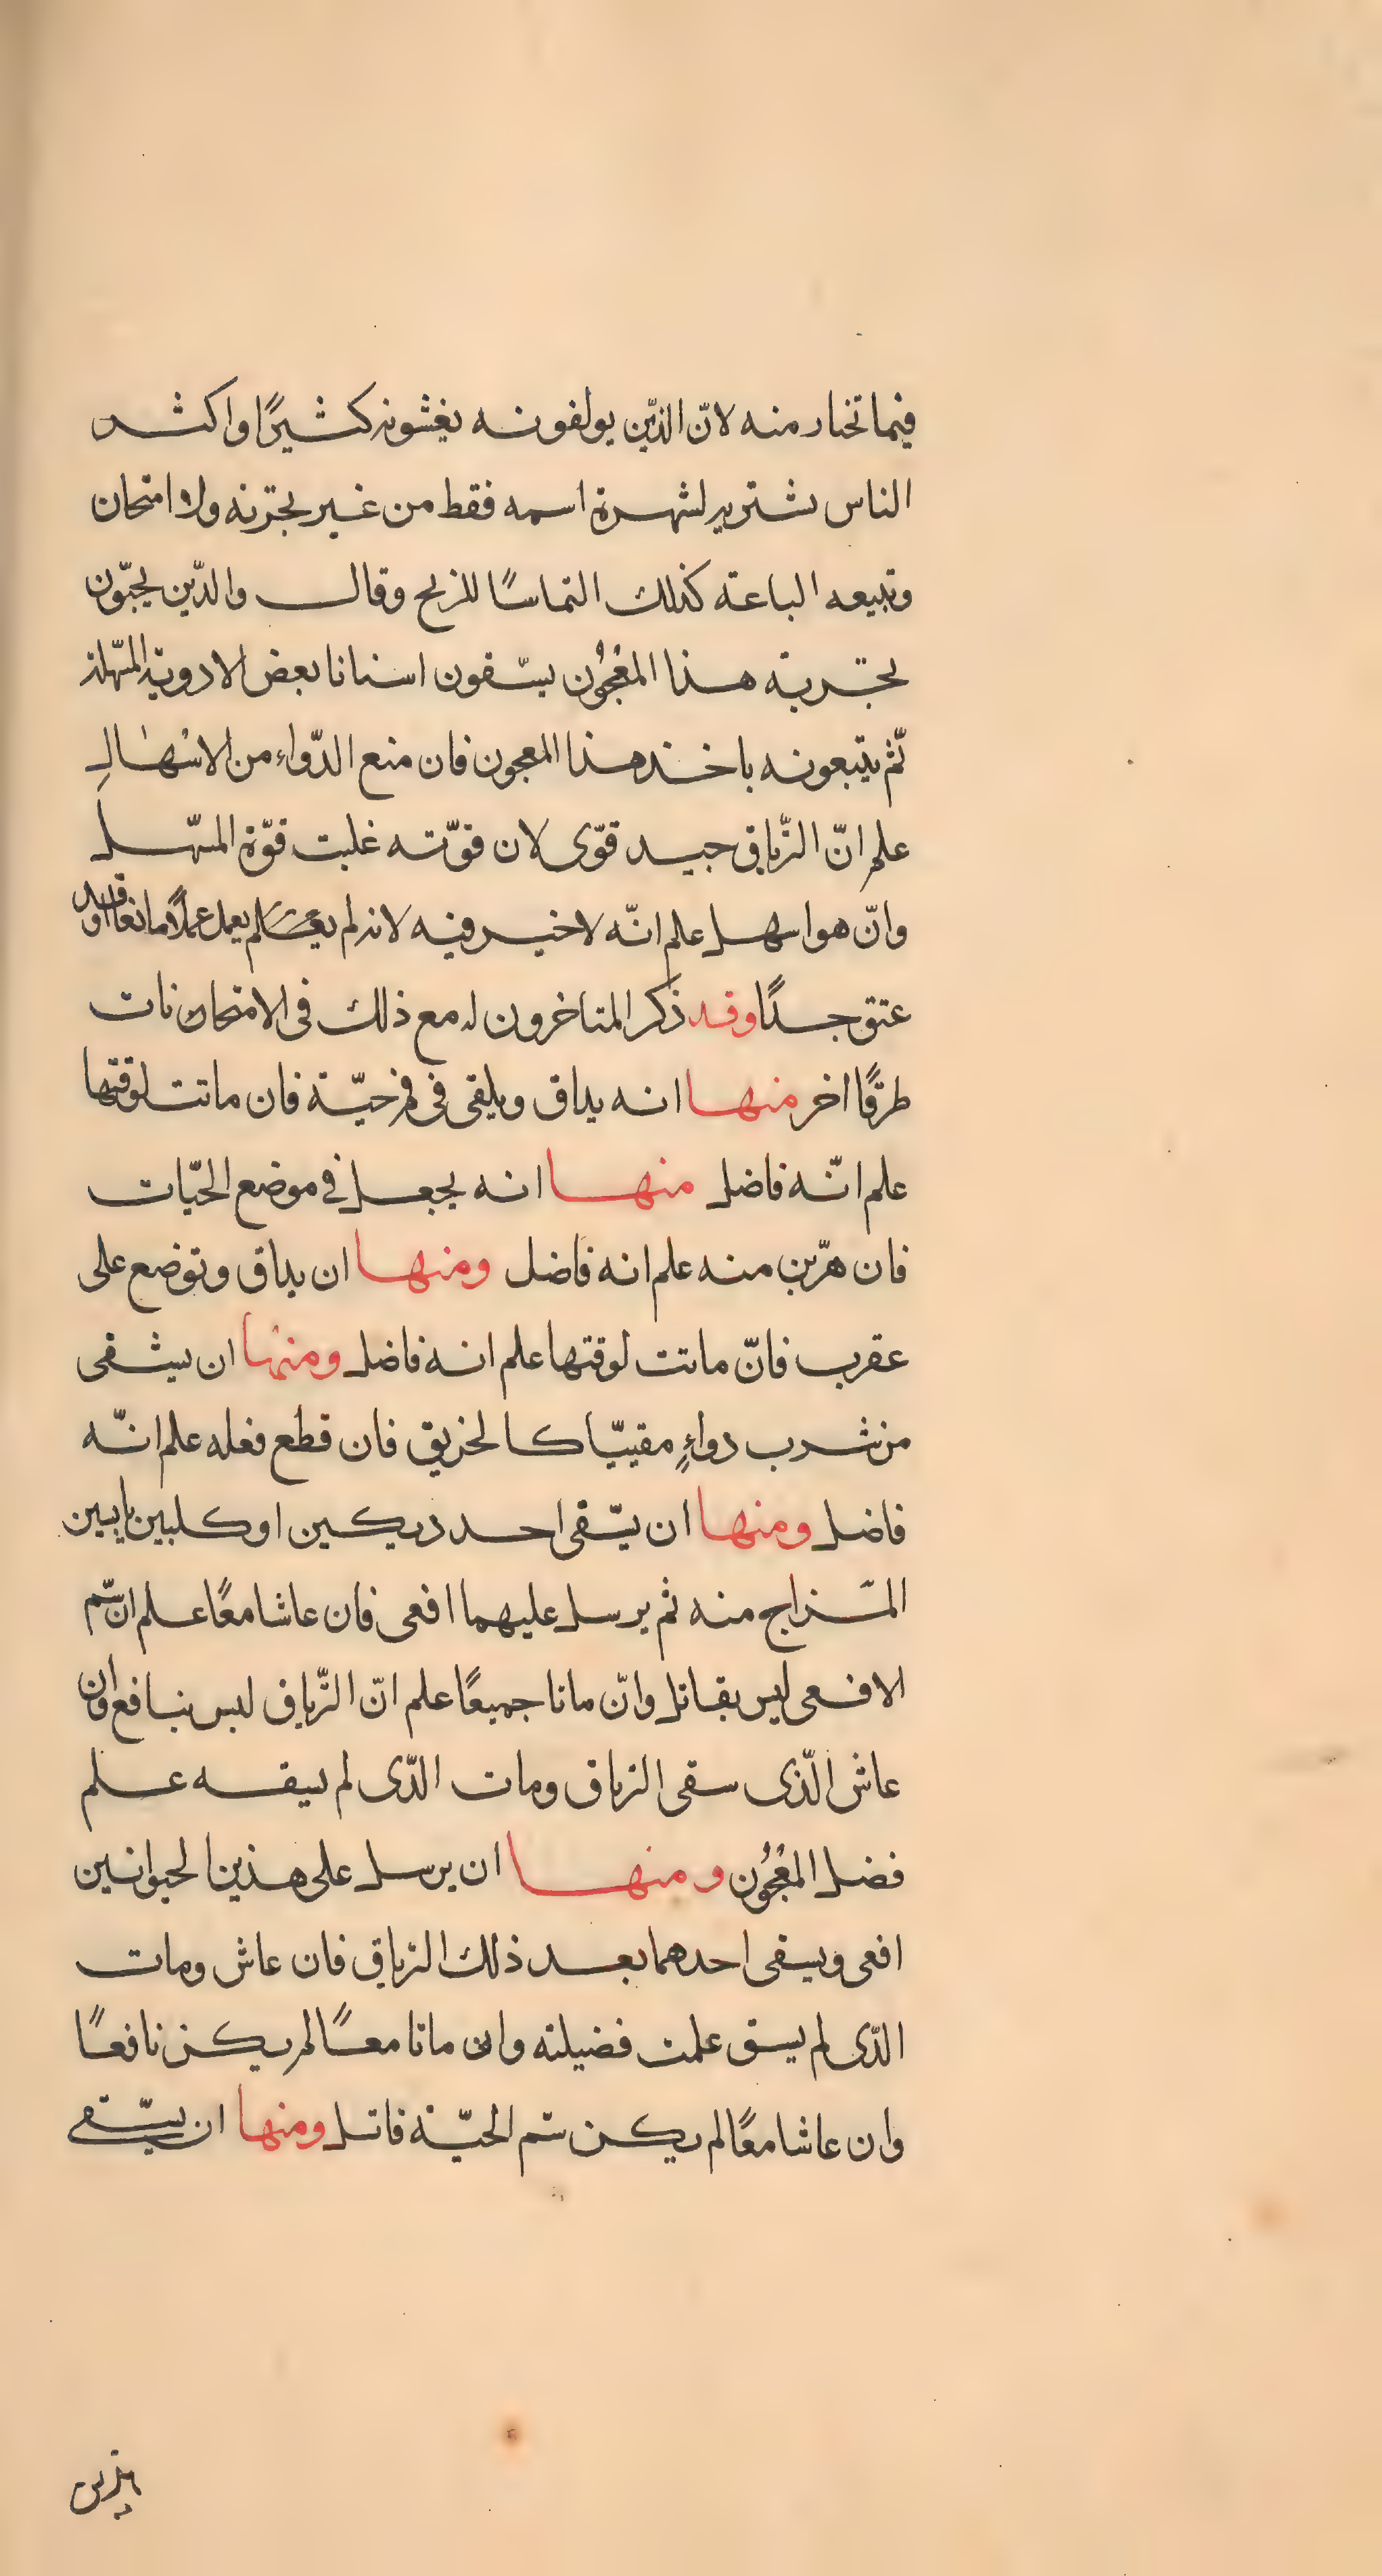 فيما تختار منه لانّ الذّين يولفونه يغشونه كثيرًا واكثر
الناس يشتريه لشهرة اسمه فقط من غير تجربه ولا امتحان
وتبيعه الباعة كذلك التماسًا للربح وقال والذّين يحبّون
تجربة هذا المعْجُون يسّقون اسنانا بعض الادوية المسّهلة
ثّم يتبعونه باخذ هذا المعجون فان منع الدّواء من الاسْهالِ
علم انّ الترّياق جيد قوّى لان قوّته غلبت قوّة المسّهل
وانّ هو اسهل علم انّه لاخير فيه لانه لم يعمل عملاً ما نعا او قد
عتق جدًا وقد ذكر المتاخرون له مع ذلك فى الامتحان نات
طرقًا اخر منها انه يداق ويلقى فى فم حيّة فان ماتت لوقتها
علم انّه فاضل منها انه يجعل فى موضع الحيّات
فان هرّبن منه علم انه فاضل ومنها ان يداق وتوضع على
عقرب فانّ ماتت لوقتها علم انه فاضل ومنها ان يشفى
من شرب دواءٍ مقيّياً كالخربق فان قطع فعله علم انّه
فاضل ومنها ان يسّقى احد ديكين او كلبين يابسين
المّزاج منه ثم يرسل عليهما افعى فان عاشا معًا علم ان سّم
الافعى ليس بقاتل وانّ ماتا جميعًا علم انّ الترّياق ليس بنافع وان
عاش الّذى سقى الترياق ومات الذّى لم يسقه علم
فضل المعْجُون ومنها ان يرسل على هذين الحيوانين
افعى ويسقى احدهما بعد ذلك الترياق فان عاش ومات
الذّى لم يسق علمت فضيلته وان ماتا معًا لم يكن نافعًا
وان عاشا معًا لم يكن سّم الحيّة قاتل ومنها ان يسّقى